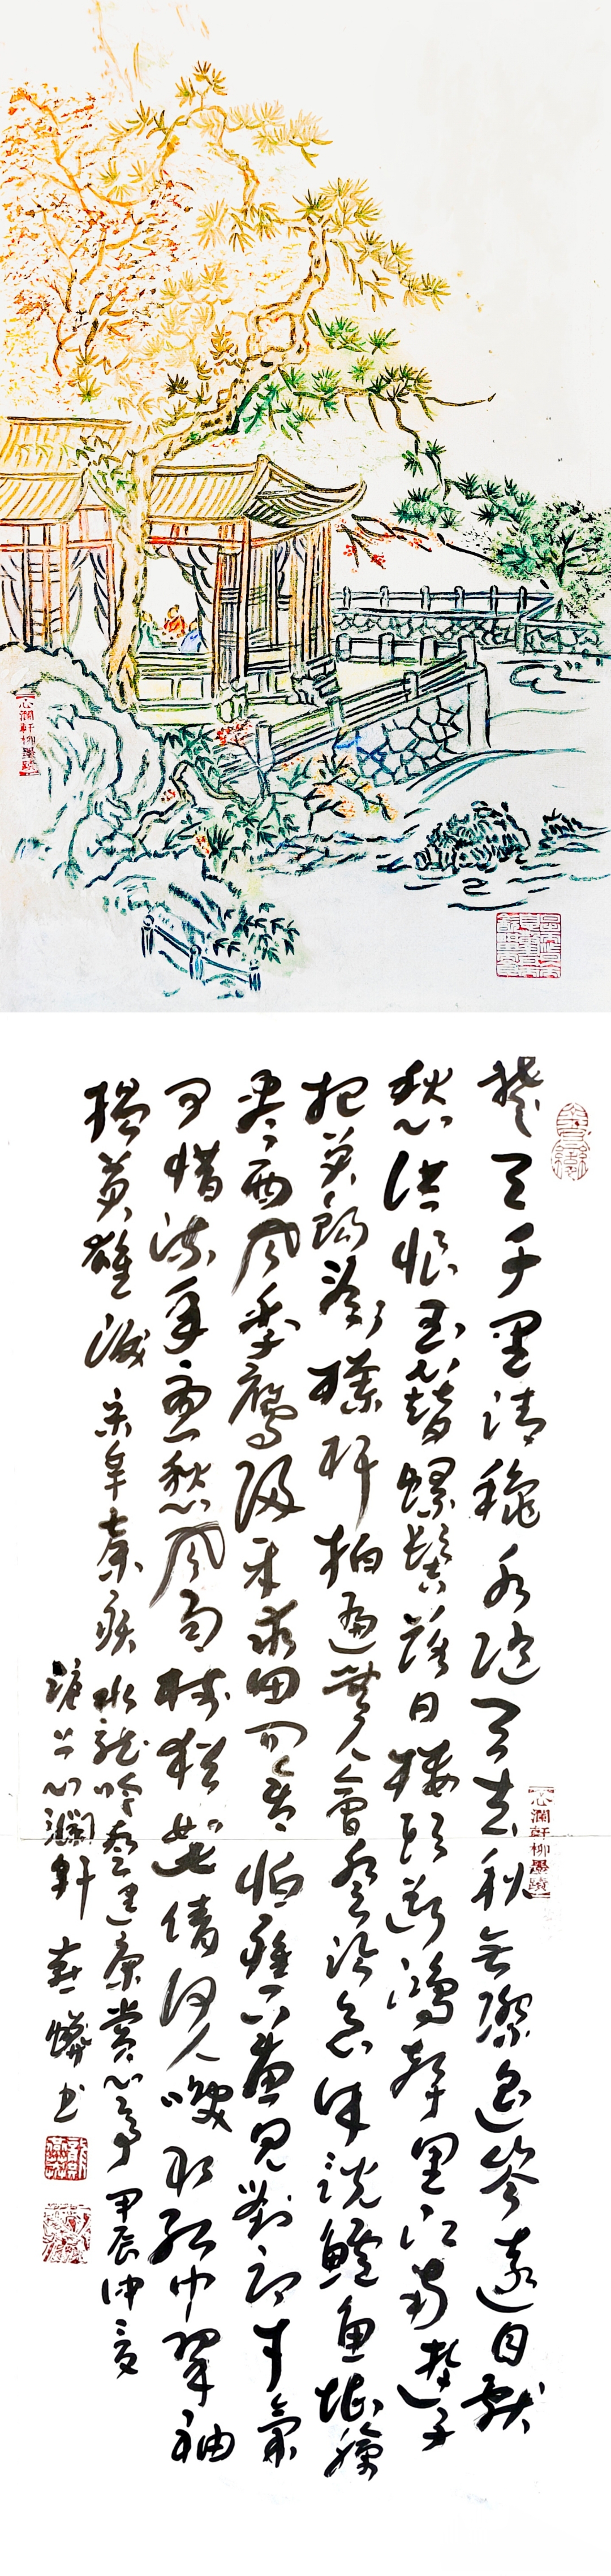 心瀾軒柳墨蹟
楚天千里清穐水隨天去秋無際遙岑遠目獻
愁供恨玉簪螺髻落日樓頭斷鴻聲里江南遊子
把吳鉤看了欄杆拍遍無人會登臨意休說鱸魚堪膾
盡西風季鷹歸未求田問舍怕應羞見劉郎才氣
可惜流年憂愁風雨樹猶如此倩何人喚取紅巾翠袖
揾英雄淚 宋辛棄疾
水龍吟登建康賞心亭 甲辰仲夏
塘上心瀾軒 書
心瀾軒柳墨蹟